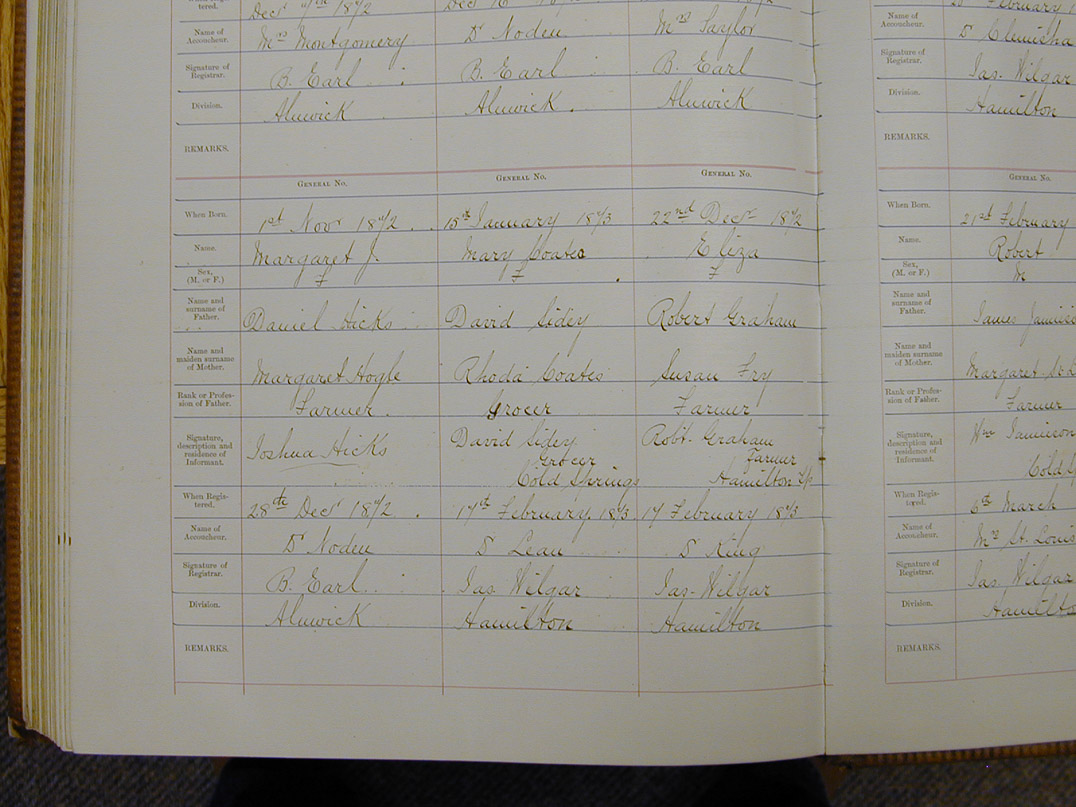 tered. Decr 7th 1872
Name of Accoucheur. Mrs Montgomery Dr Noden Mrs Taylor
Signature of Registrar. B. Earl B. Earl B. Earl
Division. Alnwick Alnwick. Alnwick
REMARKS.
GENERAL No. GENERAL No. GENERAL No.
When Born. 1st Nov 1872 15th January 1873 22nd Decr 1872
Name. Margaret J. Mary Coates Eliza
Sex, (M. or F.) F F F
Name and surname of Father. Daniel Hicks David Sidey Robert Graham
Name and maiden surname of Mother. Margaret Hogle Rhoda Coates Susan Fry
Rank or Profession of Father. Farmer. Grocer Farmer
Signature, description and residence of Informant. Joshua Hicks David Sidey Grocer Cold Springs Robt. Graham Farmer Hamilton Tp
When Registered. 28th Decr 1872. 17th February 1873 17 February 1873
Name of Accoucheur. Dr Noden Dr Lean Dr King
Signature of Registrar. B. Earl. Jas. Wilgar Jas. Wilgar
Division. Alnwick Hamilton Hamilton
REMARKS.
February
Name of Accoucheur. Dr
Signature of Registrar. Jas. Wilgar
Division. Hamilton
REMARKS.
GENERAL No.
When Born. 21st February
Name. Robert
Sex, (M. or F.) M
Name and surname of Father. James
Name and maiden surname of Mother. Margaret
Rank or Profession of Father. Farmer
Signature, description and residence of Informant. Wm Jamieson Cold
When Registered. 6th March
Name of Accoucheur. Mrs St. Louis
Signature of Registrar. Jas. Wilgar
Division. Hamilto
REMARKS.